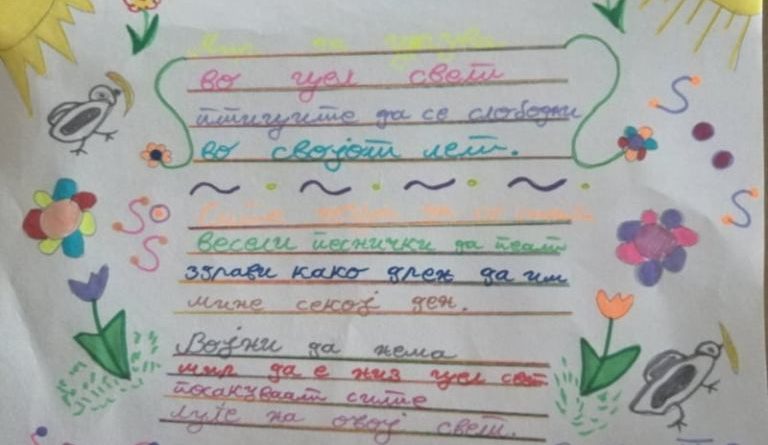 Мир да
во цел свет
птиците да се слободни
во својот лет.
да се
весели песнички да пеат
здрави како дрен да им
мине секој ден.
Војни да нема
мир да е низ цел свет
посакуваат сите
луѓе на овој свет.